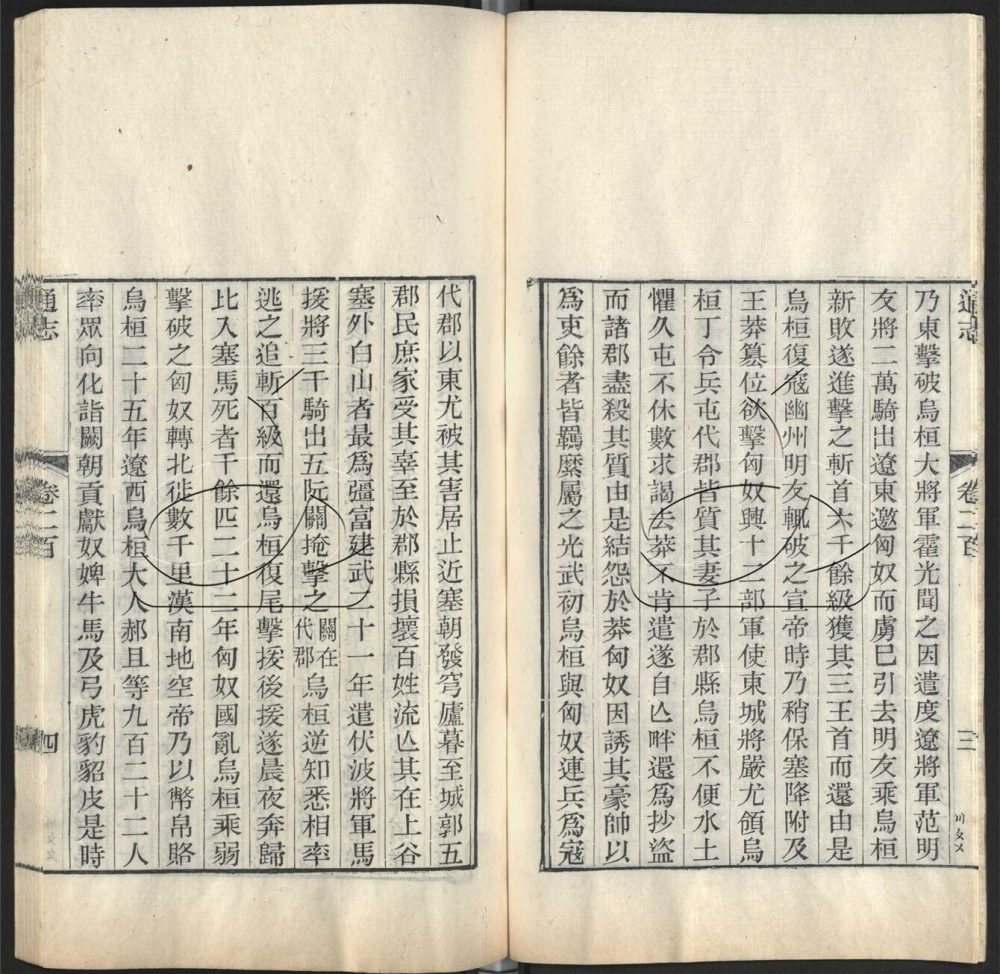 通志
卷二百
三
乃東擊破烏桓大將軍霍光聞之因遣度遼將軍范明
友將二萬騎出遼東邀匈奴而虜已引去明友乘烏桓
新敗遂進擊之斬首六千餘級獲其三王首而還由是
烏桓復寇幽州明友輒破之宣帝時乃稍保塞降附及
王莽篡位欲擊匈奴興十二部軍使東域將嚴尤領烏
桓丁令兵屯代郡皆質其妻子於郡縣烏桓不便水土
懼久屯不休數求謁去莽不肯遣遂自亾畔還為抄盜
而諸郡盡殺其質由是結怨於莽匈奴因誘其豪帥以
為吏餘者皆羈縻屬之光武初烏桓與匈奴連兵為寇
代郡以東尤被其害居止近塞朝發穹廬暮至城郭五
郡民庶家受其辜至於郡縣損壞百姓流亾其在上谷
塞外白山者最為彊富建武二十一年遣伏波將軍馬
援將三千騎出五阮關掩擊之關在代郡烏桓逆知悉相率
逃之追斬百級而還烏桓復尾擊援後援遂晨夜奔歸
比入塞馬死者千餘匹二十二年匈奴國亂烏桓乘弱
擊破之匈奴轉北徙數千里漢南地空帝乃以幣帛賂
烏桓二十五年遼西烏桓大人郝且等九百二十二人
率眾向化詣闕朝貢獻奴婢牛馬及弓虎豹貂皮是時
通志
卷二百
四